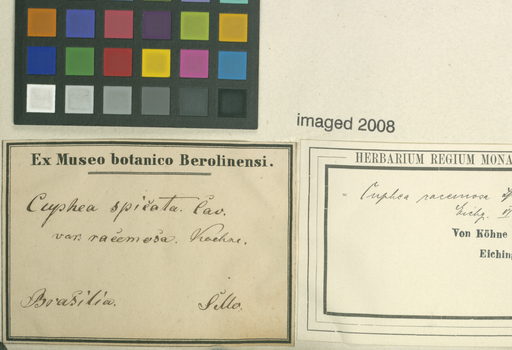 imaged 2008
Ex Museo botanico Berolinensi.
Cuphea spicata. Cav.
var. racemosa. Koehne.
Brasilia. Sello.
HERBARIUM REGIUM MONA
Cuphea racemosa
Eichg.
Von Köhne
Eiching